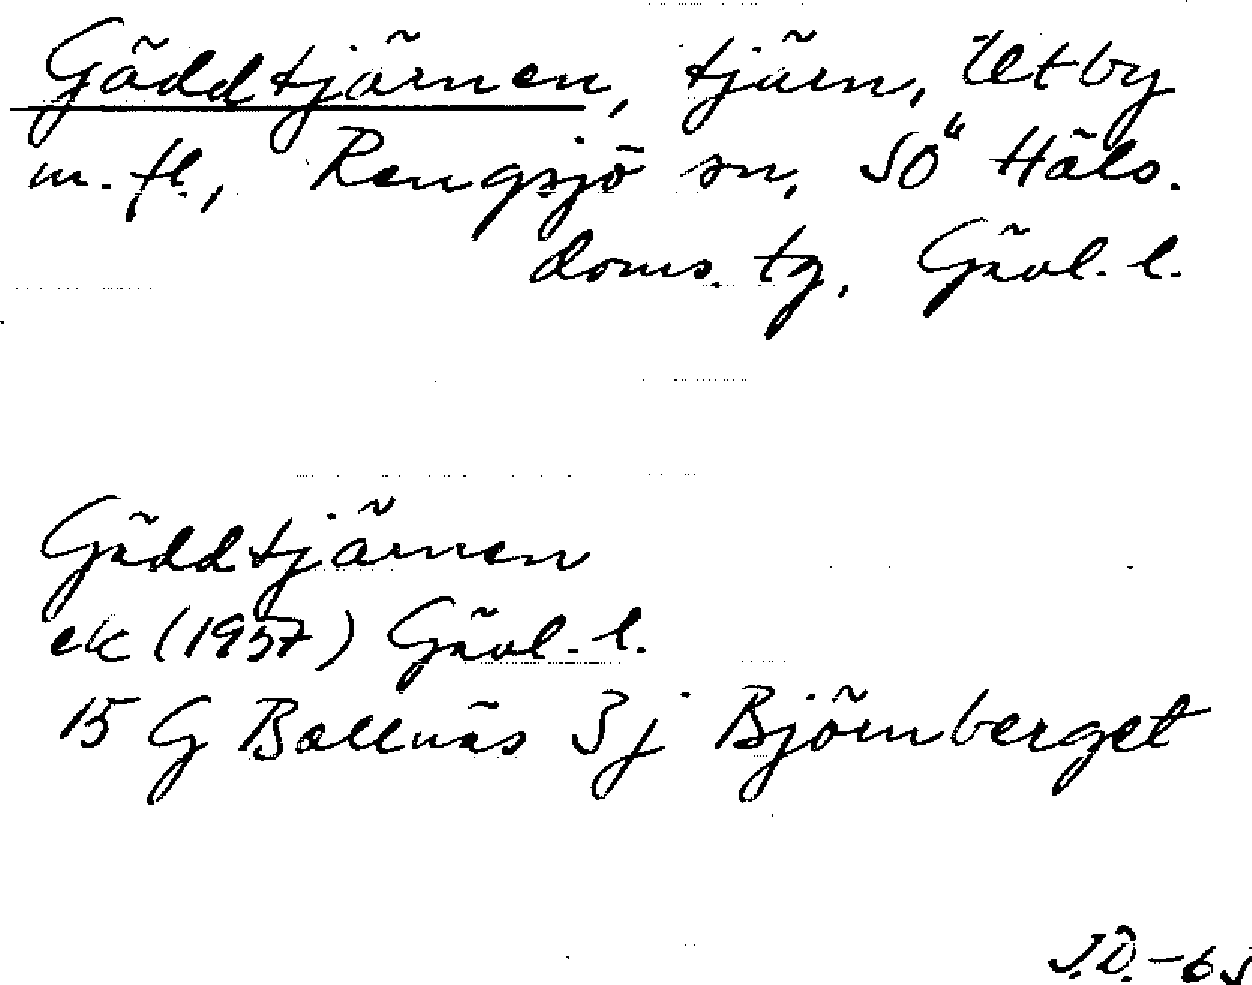 Gäddtjärnen, tjärn, Utby
m. fl., Rengsjö sn, SÖ Häls.
doms. tg, Gävl. l.
Gäddtjärnen
ek (1957) Gävl. l.
15 G Bollnäs 3j Björnberget